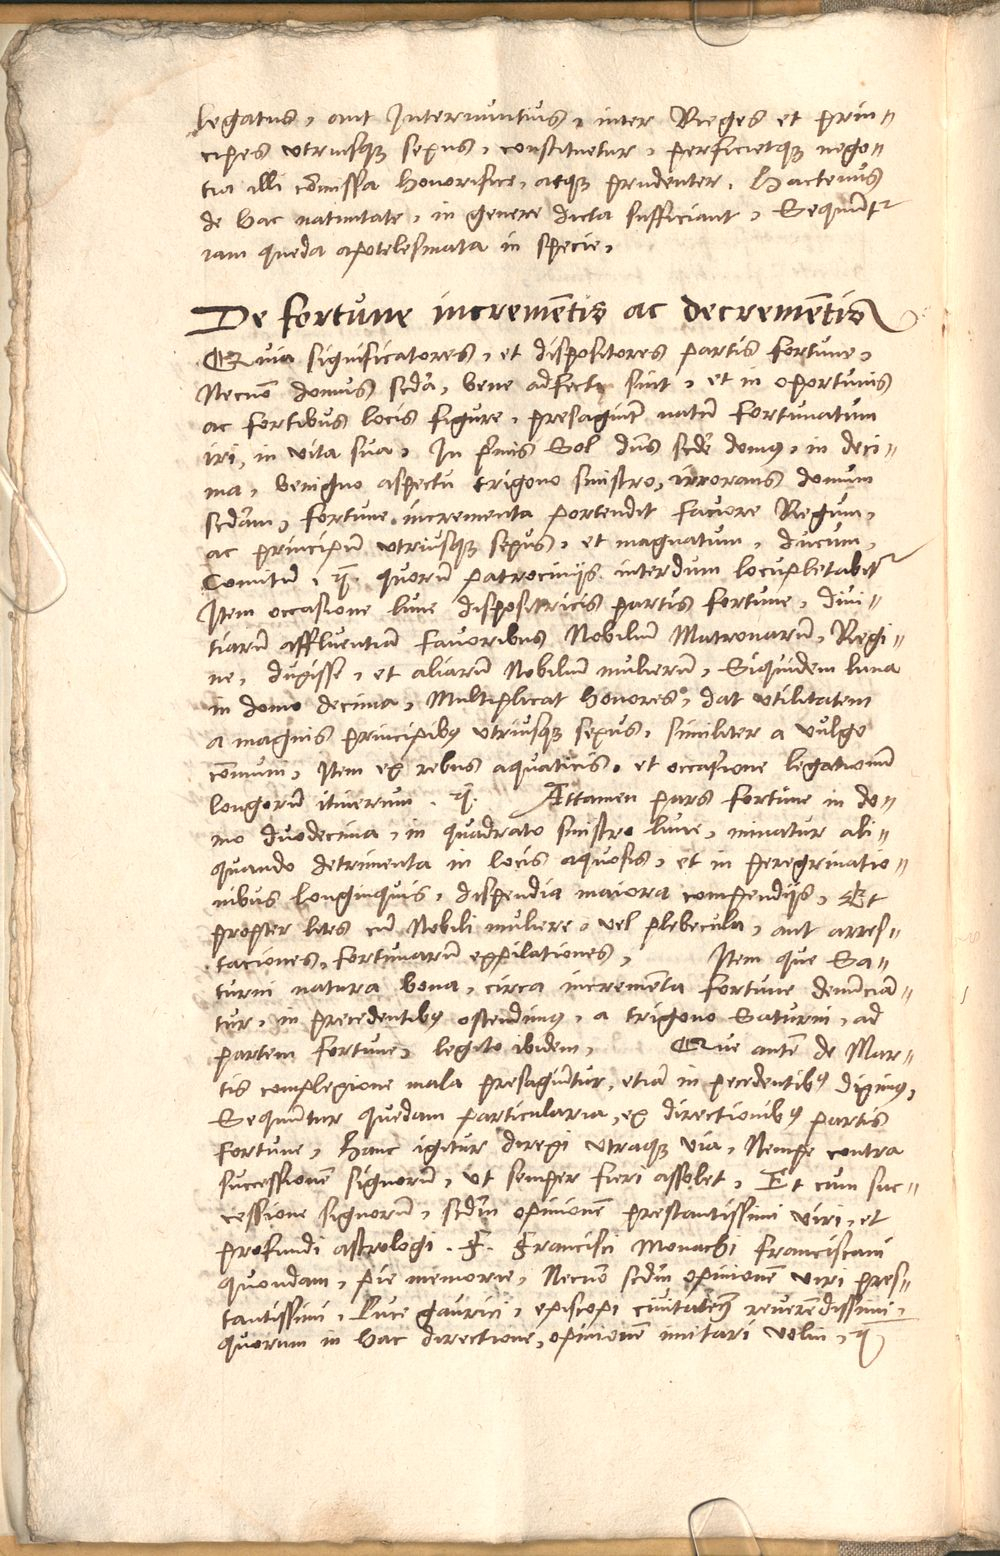 legatus, aut Internuntius, inter Reges et prin=
cipes utriusq; sexus, constituetur, perficietq; nego=
tia illi cõmissa honorifice, atq; prudenter. Hactenus
de hac natiuitate, in genere dicta sufficiant, Sequũtr
iam quedã apotelesmata in specie,
De fortune incremẽtis ac decremẽtis
Quia significatores, et dispositores partis fortune,
Necnõ domus scdã, bene adfecti sint, et in oportunis
ac fortibus locis figure, presagiũt natũ fortunatum
iri, in vita sua, In p̃mis Sol dñs scdẽ domꝰ, in deci=
ma, benigno aspectu trigono sinistro, irrorans domum
scdam, fortune incrementa portendit favore Regum,
ac principũ utriusq; sexus, et magnatum, ducum,
Comitũ, &c. quorũ patrocinijs interdum locupletabitr
Item occasione lune dispositricis partis fortune, divi=
tiarũ affluentiã favoribus Nobiliũ Matronarũ, Regi=
ne, ducisse, et aliarũ Nobiliũ mulierũ, Siquidem luna
in domo decima, Multiplicat honores, dat utilitatem
a magnis principibꝰ utriusq; sexus, similiter a vulgo
cõmuni, Item ex rebus aquaticis, et occasione legationũ
longorũ itinerum. &c. Attamen pars fortune in do=
mo duodecima, in quadrato sinistro lune, minatur ali=
quando detrimenta in locis aquosis, et in peregrinatio=
nibus longinquis, dispendia maiora compendijs, Et
propter lites cũ Nobili muliere, vel plebecula, aut arres=
taciones, fortunarũ expilationes, Item que Sa=
turni natura bona, circa incremẽta fortune denũciã=
tur, in precedentibꝰ ostendimꝰ, a trigono Saturni, ad
partem fortune, legito ibidem, Que autẽ de Mar=
tis complexione mala presagiũtur, etiã in p̃cedentibꝰ diximꝰ,
Sequũtur quedam particularia, ex directionibꝰ partis
fortune, Hanc igitur direxi utraq; via, Nempe contra
successionẽ signorũ, ut semper fieri assolet, Et cum suc=
cessione signorũ, scdm̃ opinionẽ prestantissimi viri, et
profundi astrologi. F. Francisci Monachi franciscani
quondam, pie memorie, Necnõ scdm̃ opinionẽ viri pres=
tantissimi, Luce gaurici, episcopi civitatẽs reuerẽdissimi,
quorum in hac directione, opinionẽ imitari volui, &c